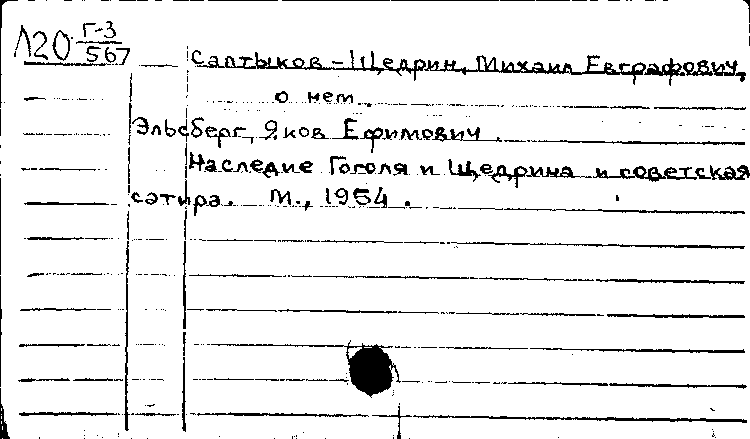 Л20 Г-3/567
Салтыков-Щедрин, Михаил Евграфович,
о нем.
Эльсберг, Яков Ефимович.
Наследие Гоголя и Щедрина и советская
сатира. М., 1954.